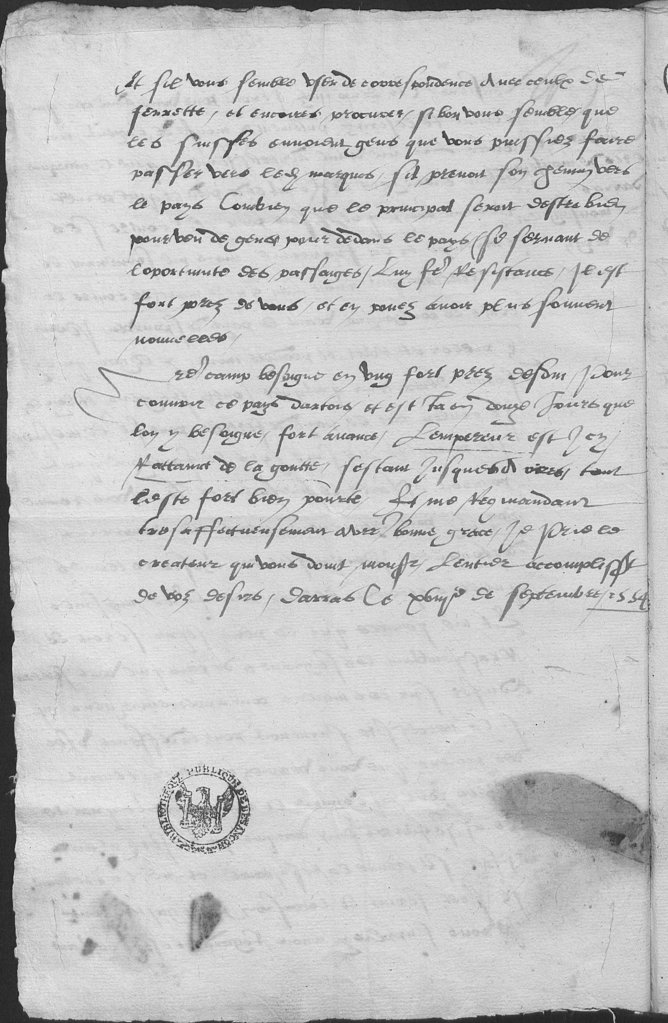 Et sil vous semble user de correspondence avec ceulx de
ferrette, et encoires procurer, si bon vous semble, que
les suysses envoient gens que vous puissiez faire
passer vers led marquis, sil prenoit son chemin vers
le pays Combien que le principal seroit destre bien
pourveu de gens pour dedans le pays, se servant de
loportunite des passaiges, luy fe Resistance, Il est
fort prez de vous, et en povez avoir plus souvent
nouvelles,
camp besoigne en ung fort prez desdin, pour
couvrir ce pays dartois, et est ja en douze Jours que
lon y besoigne, fort avance, Lempereur est Icy
Rattainct de la goutte, sestant Jusques a tout
leste fort bien porte, Et me Recommandant
tresaffectueusement a vre bonne grace, Je prie le
createur qui vous doint, monsr, lentier accomplisst
de voz desirs, darras Le xviije de septembre, 1554
BIBLIOTHEQUE PUBLIQUE DE BESANCON